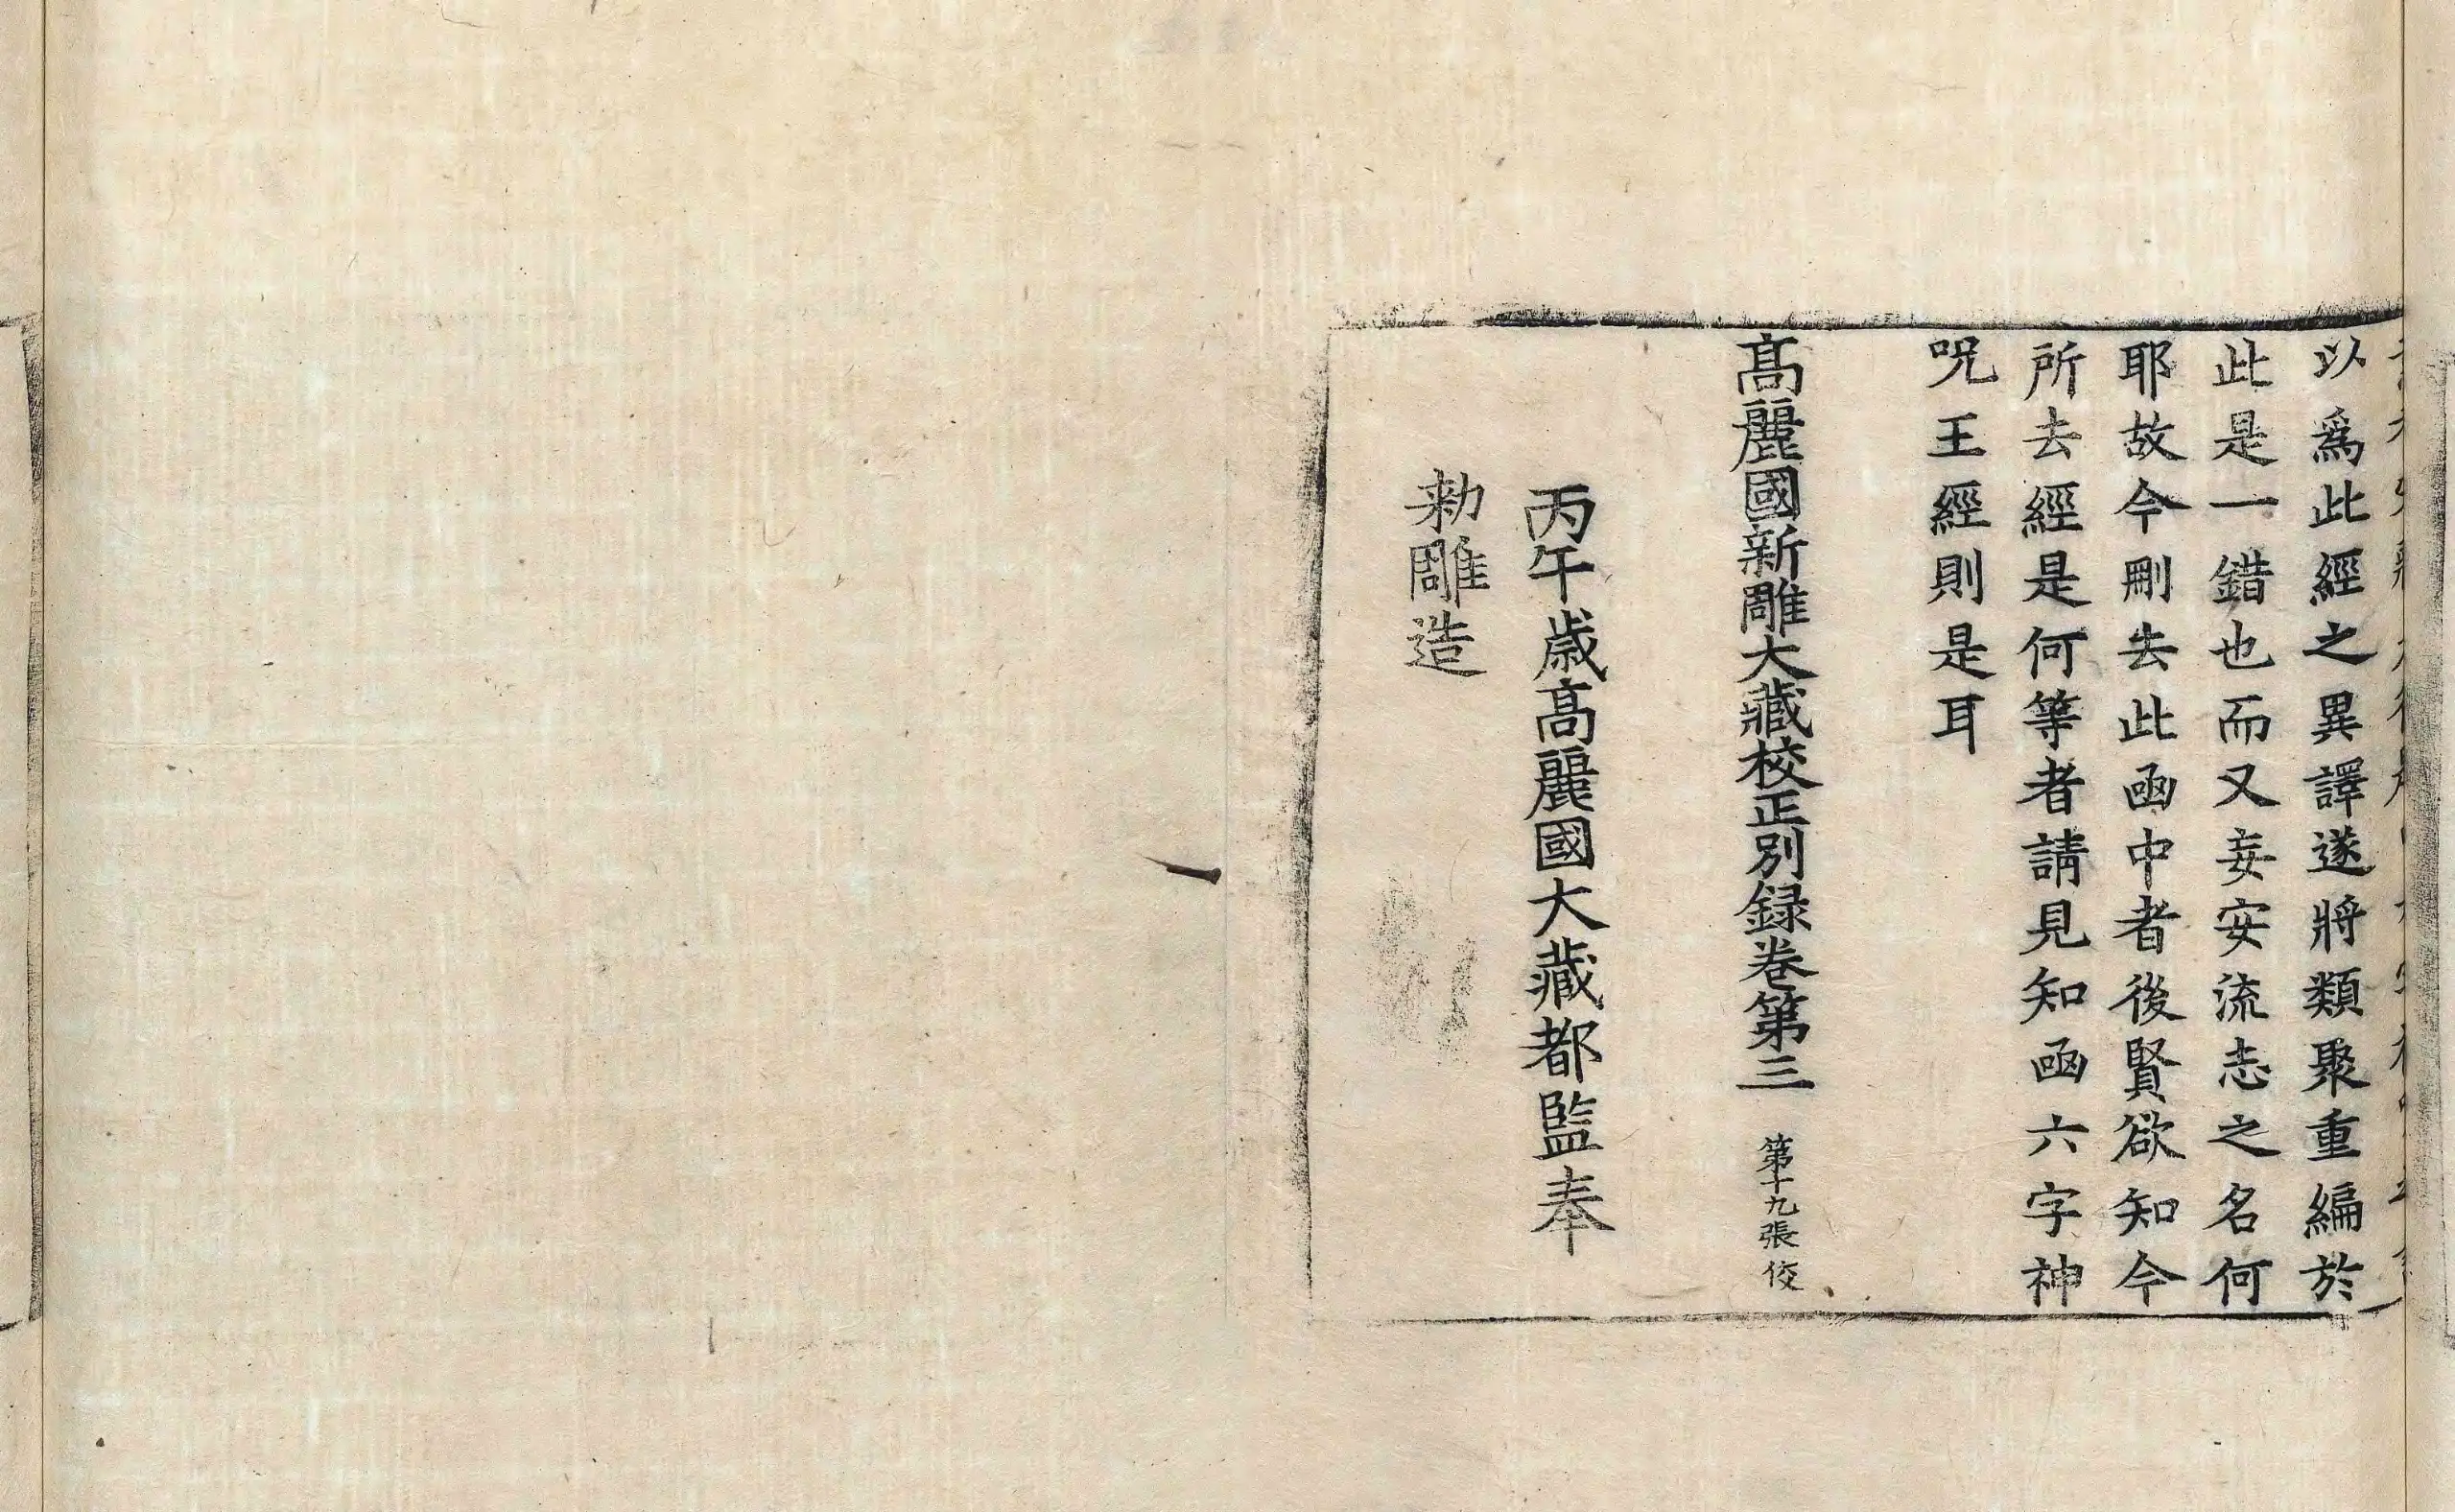 以爲此經之異譯遂將類聚重編於
此是一錯也而又妄安流志之名何
耶故今刪去此函中者後賢欲知今
所去經是何等者請見知函六字神
呪王經則是耳
高麗國新雕大藏校正別録卷第三 第十九張 俊
丙午歲高麗國大藏都監奉
勑雕造